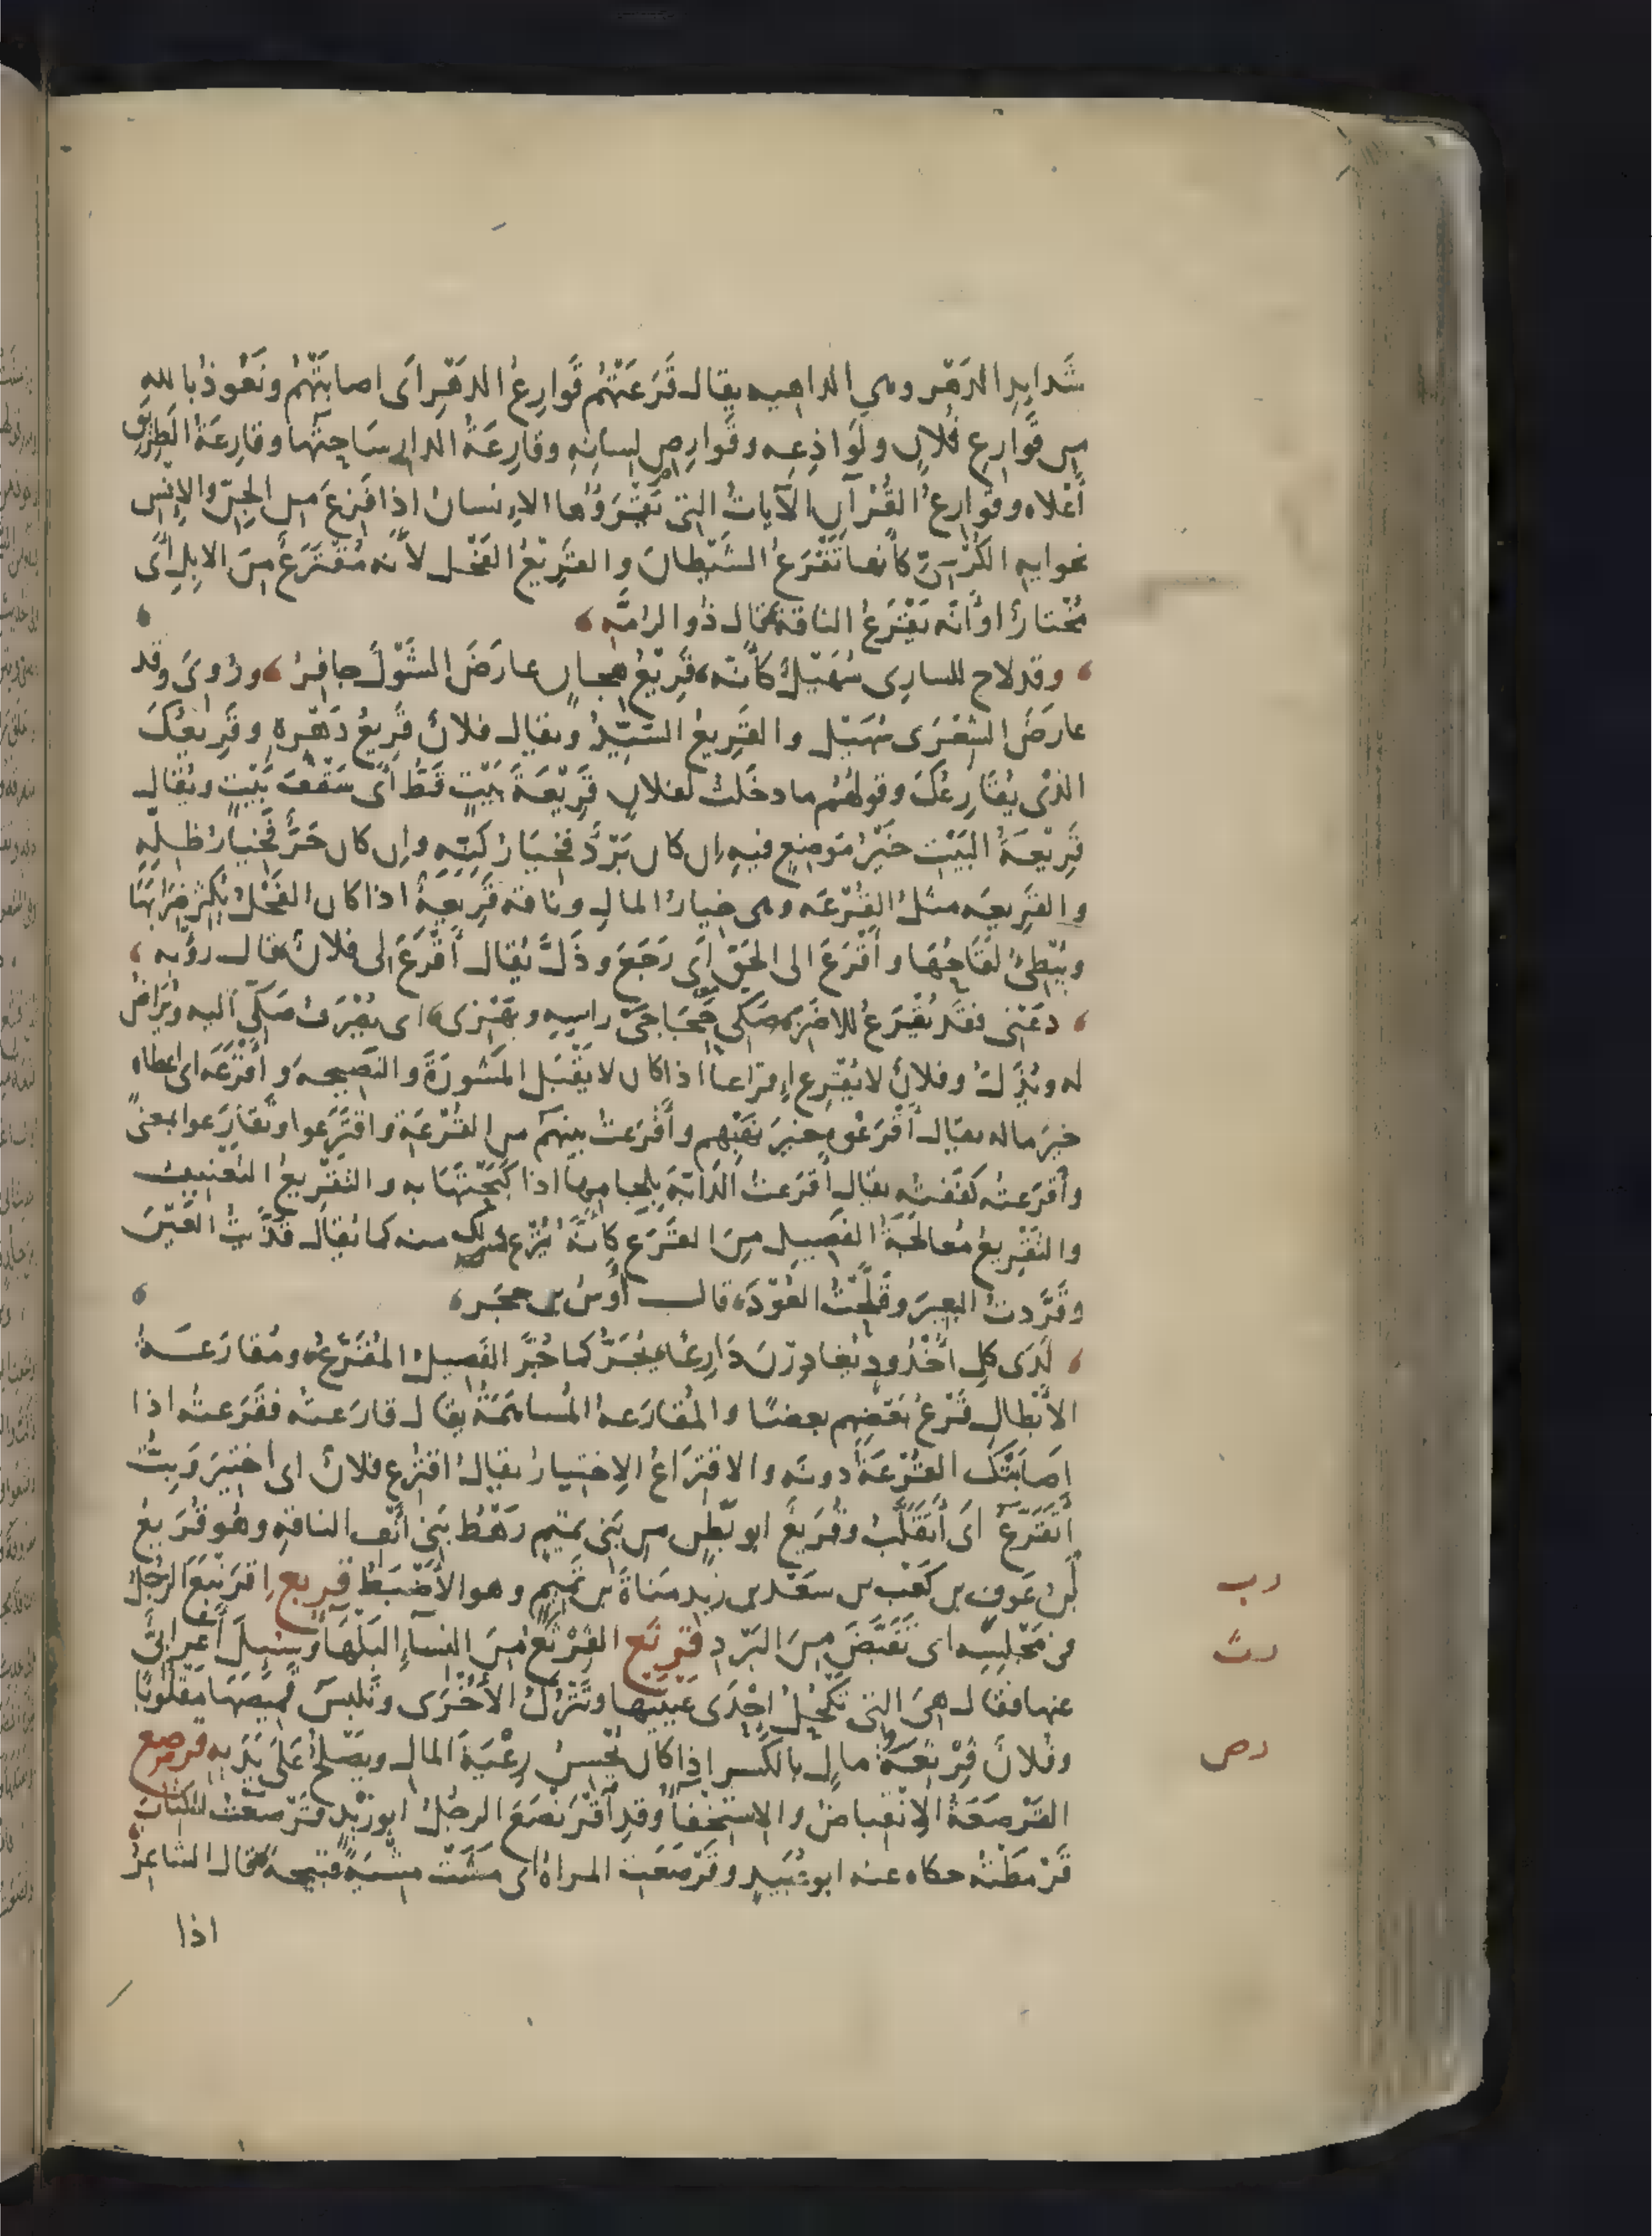 شَدايِدِ الدَهْرِ وهي الداهيه يقال قَرَعَتْهُم قَوارِعُ الدَهْرِ اَى اصابَتْهُم ونَعُوذُ بالله
من قَوارِعِ فُلانٍ ولَوَاذِعِه وقَوارِصِ لِسانِهِ وقارِعَةُ الدارِ سَاحِتُها وقارِعَةُ الطَرِيقِ
أَعْلاه وقوارِعُ القُرْآنِ الآيات التى يَقْرَؤُها الاِنسان اذا فَزِعَ من الجِنِّ والاِنِس
نحوايهِ الكُرْسِىِّ كأنها تَقْرَعُ الشَيْطانَ والقَرِيْعُ الفَحْل لأنه مُقْتَرَعٌ مِنَ الاِبِلِ أى
مُخْتارٌ او أنّه يَقْرَعُ الناقةَ قال ذُو الرُمّه
وقد لاح للسارِى سُهَيْلٌ كأنّه قَرِيْعُ هِجانٍ عارَضَ الشَوْلَ جافِرُ ورُوىَ وقد
عارَضَ الشِعْرَى سُهَيْل والقَرِيعُ السَيِّدُ ويقال فلانٌ قَرِيعُ دَهْرِهِ وقَرِيعُكَ
الذى يُقَارِعُكَ وقولهُم ما دخَلتُ لفلانٍ قَرِيْعَةَ بَيْتٍ قَطُّ أى سَقْفَ بَيْتٍ ويُقال
قَرِيْعَةُ البَيْتِ خَيْرُ مَوضِعٍ فيهِ اِن كان بَرْدٌ فخِيَارُ كِنِّهِ واِن كان حَرٌّ فخِيارُ ظِلِّهِ
والقَرِيعَه مثلُ القُرْعَه وهى خيارُ المالِ وناقه قَرِيعَةٌ اذا كان الفَحْلُ يُكثِر ضِرَابَهَا
ويُبْطِئُ لَقَاحُهَا وأَقْرَعَ الى الحَقِ اَى رَجَعَ وذَلَّ يُقال أَقْرَعَ لى فلانٌ قال رؤبه
دَعْنى فقَد يُقْرَعُ للاضَزِّ صَكّى حِجَاجَىْ راسِهِ وبَهْزى اى يُصْرَف صَكّى اليه ويُراضُ
له ويُذَلّ وفلانٌ لا يُقْرِع اِقراعاً اذا كان لا يَقْبَل المَشُورَةَ والنَصِيحه وأَقْرَعَه اى اعطاه
خيرَ ماله يقال أَقْرَعُوه خيرَ نَهْبِهِم وأَقْرَعتُ بينهُم من القُرْعَةِ واقتَرَعوا وتقارَعوا بمعنًى
وأَقرَعتُه كفَفتُه يقال أَقْرَعتُ الدَابَّةَ بِلِجامِها اذا كَبَحْتَهَا به والتَقْرِيعُ التَعْنِيف
والتَقْرِيعُ مُعالَجَةُ الفَصِيلِ مِنَ القَرَعِ كأنّهُ يُنْزَع ذلك منه كما يُقال قَذَّيْتُ العَيْنَ
وقَرَّدتُ البَعِيرَ وقَلَّحْتُ العَوْدَ قال أَوسُ بن حجَر
لَدَى كلِ اُخْدُودٍ يُغادِرْنَ دَارِعًا يُجَرُّ كما جُرَّ الفَصِيلُ المُقَرَّعُ ومُقارَعَةُ
الأَبْطالِ قَرْعُ بَعْضِهِم بعضًا والمُقارَعهُ المُساهَمَةُ يقال قارَعتُه فقَرَعتُه اذا
اِصَابَتْكَ القُرْعَةُ دونَه والاقتِرَاعُ الاِختِيارُ يقال اقتُرِع فلانٌ اى اختِيرَ وَبِتُّ
أتَقَرَّعُ اَى أَتَقَلَّبُ وقُرَيعٌ ابو بَطْنٍ من بَنى تميم رَهْط بَنى أَنْفِ الناقهِ وهُو قُرَيعُ
بْنُ عَوفِ بن كَعْبِ بن سَعْد بن زيد مَناةَ بن تَميمٍ وهو الأَضْبَط قربع اِقرَنْبَعَ الرجُلُ
فى مَجْلِسِه اى تَقَبَّضَ مِنَ البَرْدِ قرثع القَرْثَعُ مِنَ النسآءِ البَلْهَآءُ وسُئِلَ أَعرابىٌّ
عنها فقال هِىَ التى تَكْحَلُ اِحْدَى عَيْنَيها وتَتْرُك الأُخْرَى وتَلبسُ قَمِيصَهَا مَقلُوبًا
وفُلانٌ قِرْثِعَةُ مالٍ بالكَسر اذا كان يُحْسِنُ رِعْيَةَ المالِ ويَصْلُحُ عَلى يَدَيهِ قرصع
القَرْصَعَةُ الاِنْقِباضُ والاِسْتِخْفآءُ وقد اقْرَنْصَعَ الرجُل ابو زَيْد قَرْصَعتُ الكتابَ
قَرْمَطْتُه حكاه عنه ابو عُبَيدٍ وقَرْصَعَتِ المراة اى مَشَتْ مِشْيَةً قبيحةً قال الشاعِرُ
اذا
رب
رث
رص